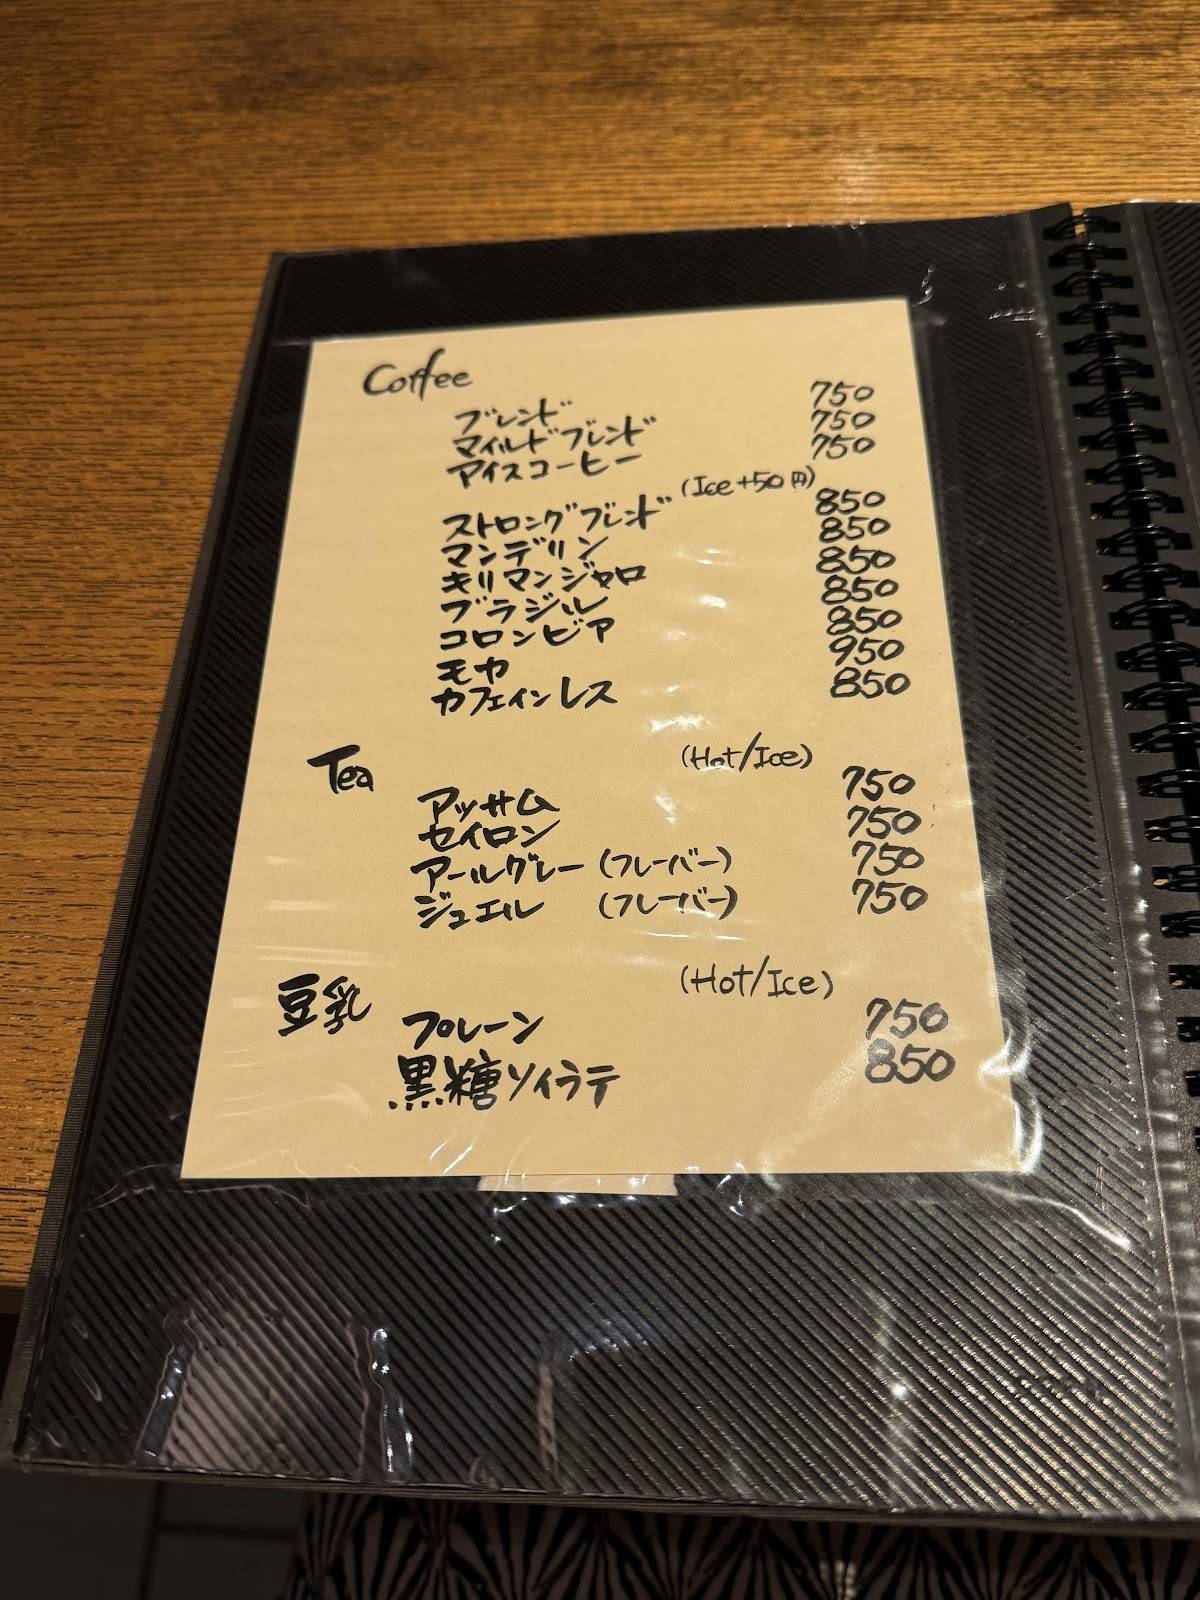 Coffee
ブレンド 750
マイルドブレンド 750
アイスコーヒー 750
(Ice+50円)
ストロングブレンド 850
マンデリン 850
キリマンジャロ 850
ブラジル 850
コロンビア 850
モカ 950
カフェインレス 850
Tea (Hot/Ice)
アッサム 750
セイロン 750
アールグレー (フレーバー) 750
ジュエル (フレーバー) 750
豆乳 (Hot/Ice)
プレーン 750
黒糖ソイラテ 850